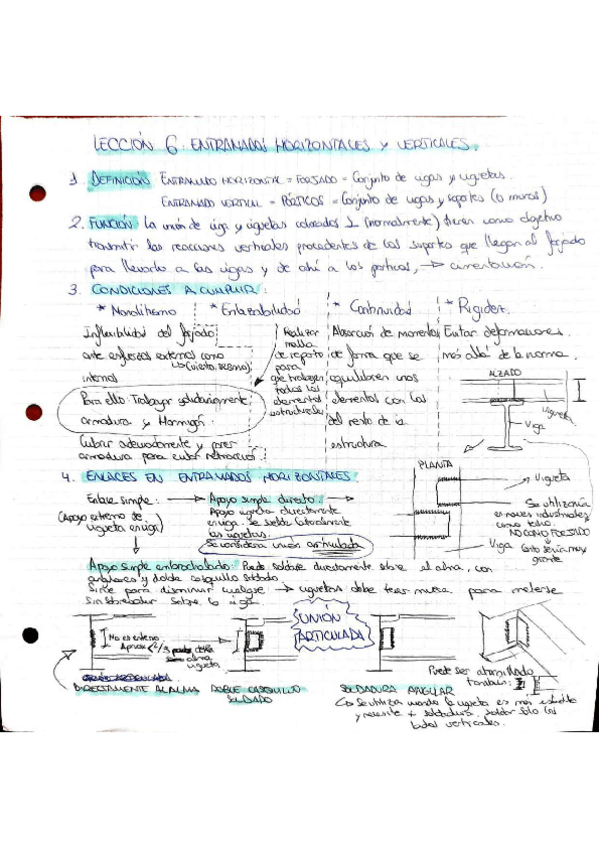 LECCIÓN 6: ENTRAMADOS HORIZONTALES Y VERTICALES.
1. DEFINICIÓN ENTRAMADO HORIZONTAL = FORJADO = Conjunto de vigas y viguetas.
ENTRAMADO VERTICAL = PÓRTICOS = Conjunto de vigas y soportes (o muros)
2. FUNCIÓN La unión de vigas y viguetas colocadas ⊥ (normalmente) tienen como objetivo
transmitir las reacciones verticales procedentes de los soportes que llegan al forjado
para llevarlo a las vigas y de ahí a los pórticos, → cimentación.
3. CONDICIONES A CUMPLIR:
* Monolitismo * Enlazabilidad * Continuidad * Rigidez
Inflexibilidad del forjado
ante esfuerzos externos como
↳ (viento, seísmo)
internos
Para ello: Trabajar solidariamente
armadura y Hormigón
Cubrir adecuadamente y poner
armadura para evitar retracción
Realizar
malla
de reparto
para
que trabajen
todos los
elementos
estructurales
Absorción de momentos
de forma que se
equilibren unos
elementos con los
del resto de la
estructura
Evitar deformaciones
más allá de la norma.
ALZADO
Vigueta
Viga
4. ENLACES EN ENTRAMADOS HORIZONTALES.
Enlace simple: → Apoyo simple directo:
(Apoyo extremo de
vigueta en viga)
Apoyo vigueta directamente
en viga. Se suelda lateralmente
las viguetas.
Se considera unión articulada
PLANTA
Vigueta
Se utilizaría
en naves industriales
como techo.
NO COMO FORJADO
Canto sería muy
grande
Viga
Apoyo simple embrochalado: Puede soldarse directamente sobre el alma, con
angulares y doble casquillo soldado
Sirve para disminuir cuelgue → viguetas debe tener muesca para meterse
sin sobresalir sobre la viga
UNIÓN
ARTICULADA
No es extremo
Aprox < 2/3
alma
vigueta
DIRECTAMENTE AL ALMA
DOBLE CASQUILLO
SOLDADO
SOLDADURA ANGULAR
↳ Se utiliza cuando la vigueta es más estrecha
y necesite + soldadura. Soldar solo los
lados verticales.
Puede ser atornillado
también: